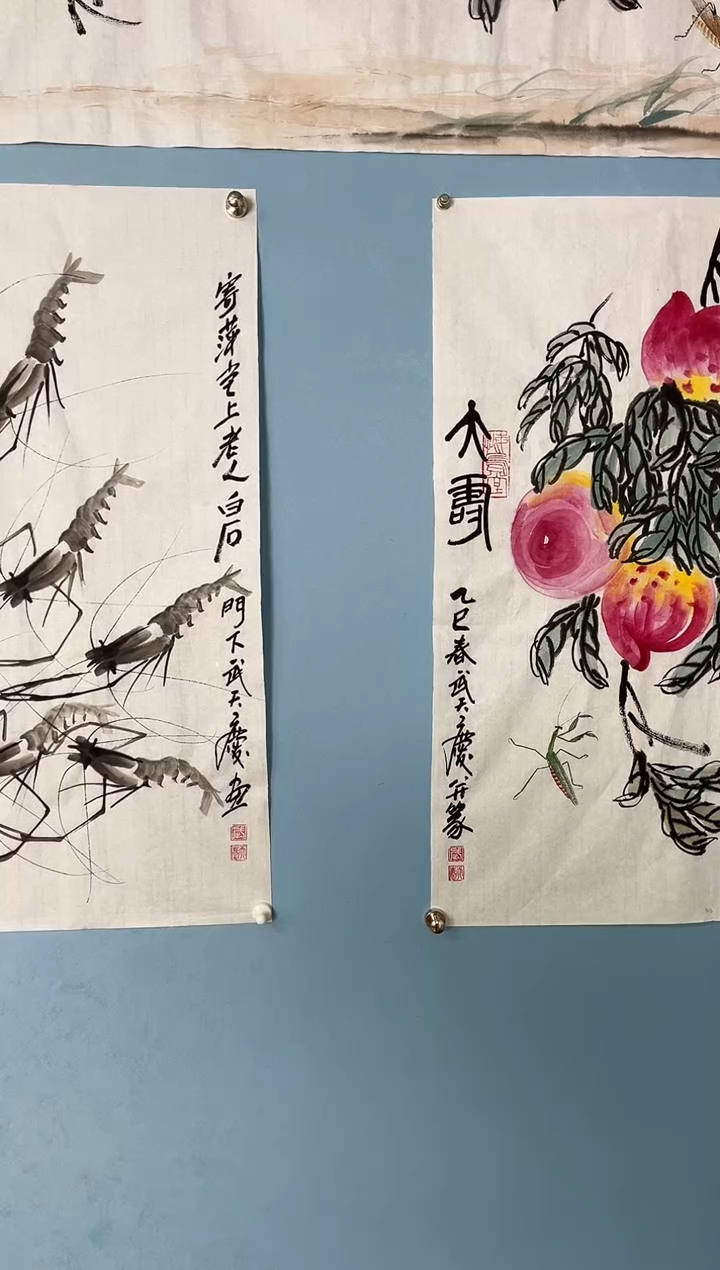 寄萍堂上老人白石
門下武天慶画
大壽
乙巳春武天慶并篆